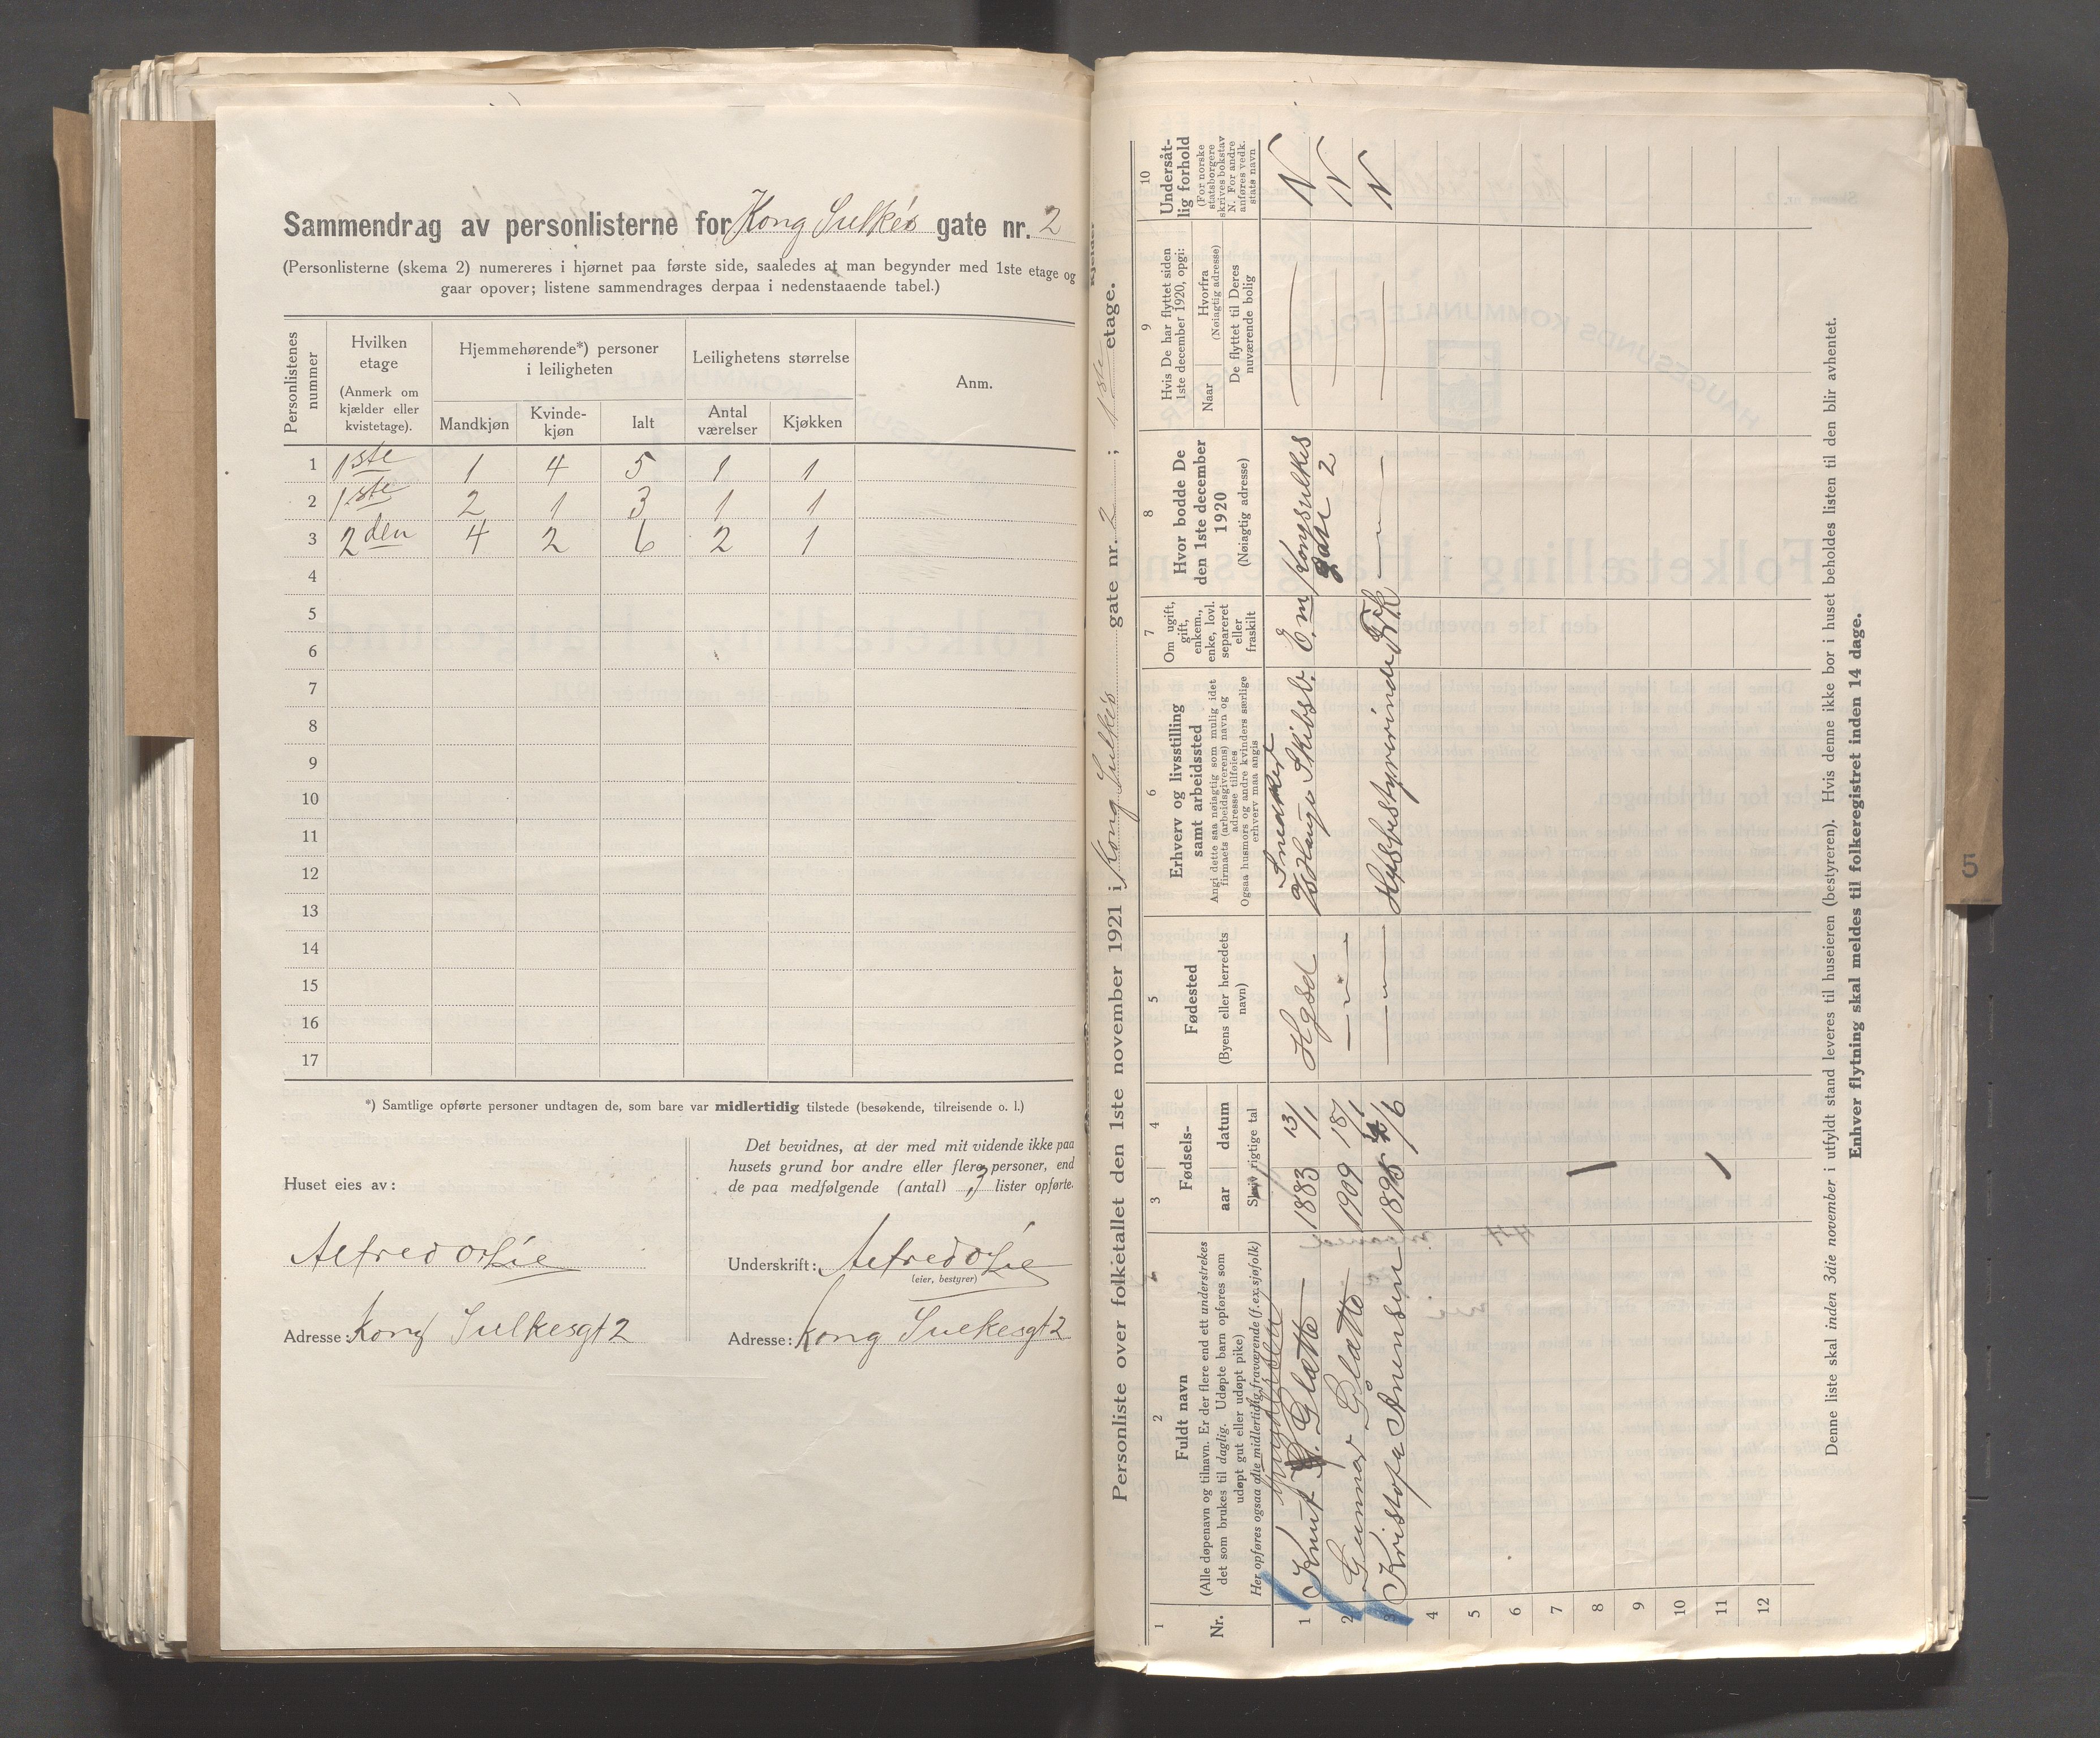 Sammendrag av personlisterne for Kong Sulkes gate nr. 2
(Personlisterne (skema 2) numereres i hjørnet paa første side, saaledes at man begynder med 1ste etage og
gaar opover; listene sammendrages derpaa i nedenstaaende tabel.)
Personlistenes nummer
Hvilken etage
(Anmerk om kjælder eller kvistetage).
Hjemmehørende*) personer i leiligheten
Mandkjøn
Kvinde-kjøn
Ialt
Leilighetens størrelse
Antal værelser
Kjøkken
Anm.
1 1ste 1 4 5 1 1
2 1ste 2 1 3 1 1
3 2den 4 2 6 2 1
4
5
6
7
8
9
10
11
12
13
14
15
16
17
*) Samtlige opførte personer undtagen de, som bare var midlertidig tilstede (besøkende, tilreisende o. l.)
Huset eies av:
Alfred O Lie
Adresse: Kong Sulkesgt 2
Det bevidnes, at der med mit vidende ikke paa
husets grund bor andre eller flere personer, end
de paa medfølgende (antal) 3 lister opførte.
Underskrift: Alfred O Lie
(eier, bestyrer)
Adresse: Kong Sulkesgt 2
Personliste over folketallet den 1ste november 1921 i Kong Sulkes gate nr. 2 ; 1ste etage.
Kjelder
1
Nr.
2
Fuldt navn
(Alle døpenavn og tilnavn. Er der flere end ett understrekes
det som brukes til daglig. Udøpte barn opføres som
udøpt gut eller udøpt pike)
Her opføres ogsaa alle midlertidig fraværende (f.ex. sjøfolk)
3 4
Fødsels-
aar datum
Skriv rigtige tal
5
Fødested
(Byens eller herredets
navn)
6
Erhverv og livsstilling
samt arbeidssted
Angi dette saa nøiagtig som mulig idet
firmaets (arbeidsgiverens) navn og
adresse tilføies
Ogsaa husmors og andre kvinders særlige
erhverv maa angis
7
Om ugift,
gift,
enkem.,
enke, lovl.
separeret
eller
fraskilt
8
Hvor bodde De
den 1ste december
1920
(Nøiagtig adresse)
9
Hvis De har flyttet siden
1ste december 1920, opgi:
Naar
Hvorfra
(Nøiagtig adresse)
De flyttet til Deres
nuværende bolig
10
Undersåt-
lig forhold
(For norske
statsborgere
skrives bokstav
N. For andre
anføres vedk.
stats navn
1 Knut Glætte 1883 13/1 Hgsd Snedker Haug Skibsb. E.m Kongsulkes gate 2 N
2 Gunnar Glætte 1909 18/1 — " — N
3 Kristofa Anensen — " — Husbestyrerinde — " — N
4
5
6
7
8
9
10
11
12
Denne liste skal inden 3die november i utfyldt stand leveres til huseieren (bestyreren). Hvis denne ikke bor i huset beholdes listen til den blir avhentet.
Enhver flytning skal meldes til folkeregistret inden 14 dage.
5